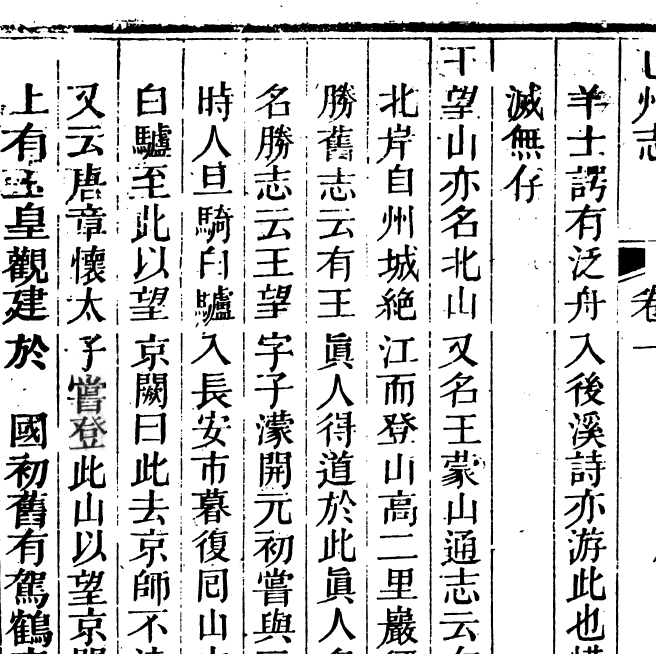 州志
卷一
羊士諤有泛舟入後溪詩亦游此也
滅無仔
王望山亦名北山又名王蒙山通志云
北岸自州城絶江而登山高二里巖
勝舊志云有王眞人得道於此眞人
名勝志云王望字子濛開元初嘗與
時人旦騎白驢入長安市暮復囘山
白驢至此以望京闕曰此去京師不
又云唐章懷太子嘗登此山以望京
上有玉皇觀建於國初舊有駕鶴